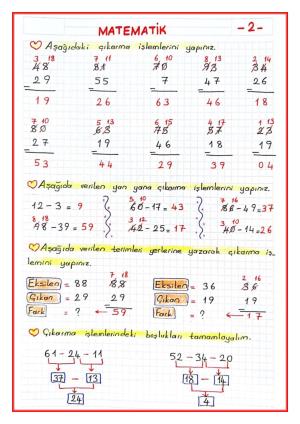 MATEMATİK -2-
Aşağıdaki çıkarma işlemlerini yapınız.
3 18 7 11 6 10 8 13 2 14
48 81 70 93 34
29 55 7 47 26
19 26 63 46 18
7 10 5 13 6 15 4 17 1 13
80 63 75 57 23
27 19 46 18 19
53 44 29 39 04
Aşağıda verilen yan yana çıkarma işlemlerini yapınız.
5 10 7 16
12 - 3 = 9 60 - 17 = 43 86 - 49 = 37
8 18 3 12 3 10
98 - 39 = 59 42 - 25 = 17 40 - 14 = 26
Aşağıda verilen terimleri yerlerine yazarak çıkarma iş-
lemini yapınız.
7 18 2 16
Eksilen = 88 88 Eksilen = 36 36
Çıkan = 29 29 Çıkan = 19 19
Fark = ? ← 59 Fark = ? ← 17
Çıkarma işlemlerindeki boşlukları tamamlayalım.
61 - 24 - 11 52 - 34 - 20
37 - 13 18 - 14
24 4